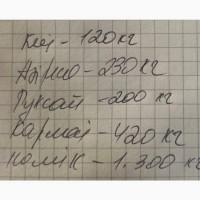 Кли - 120 кг
Адрно - 230 кг
Руксай - 200 кг
Кармаи - 420 кг
комік - 1.300 кг